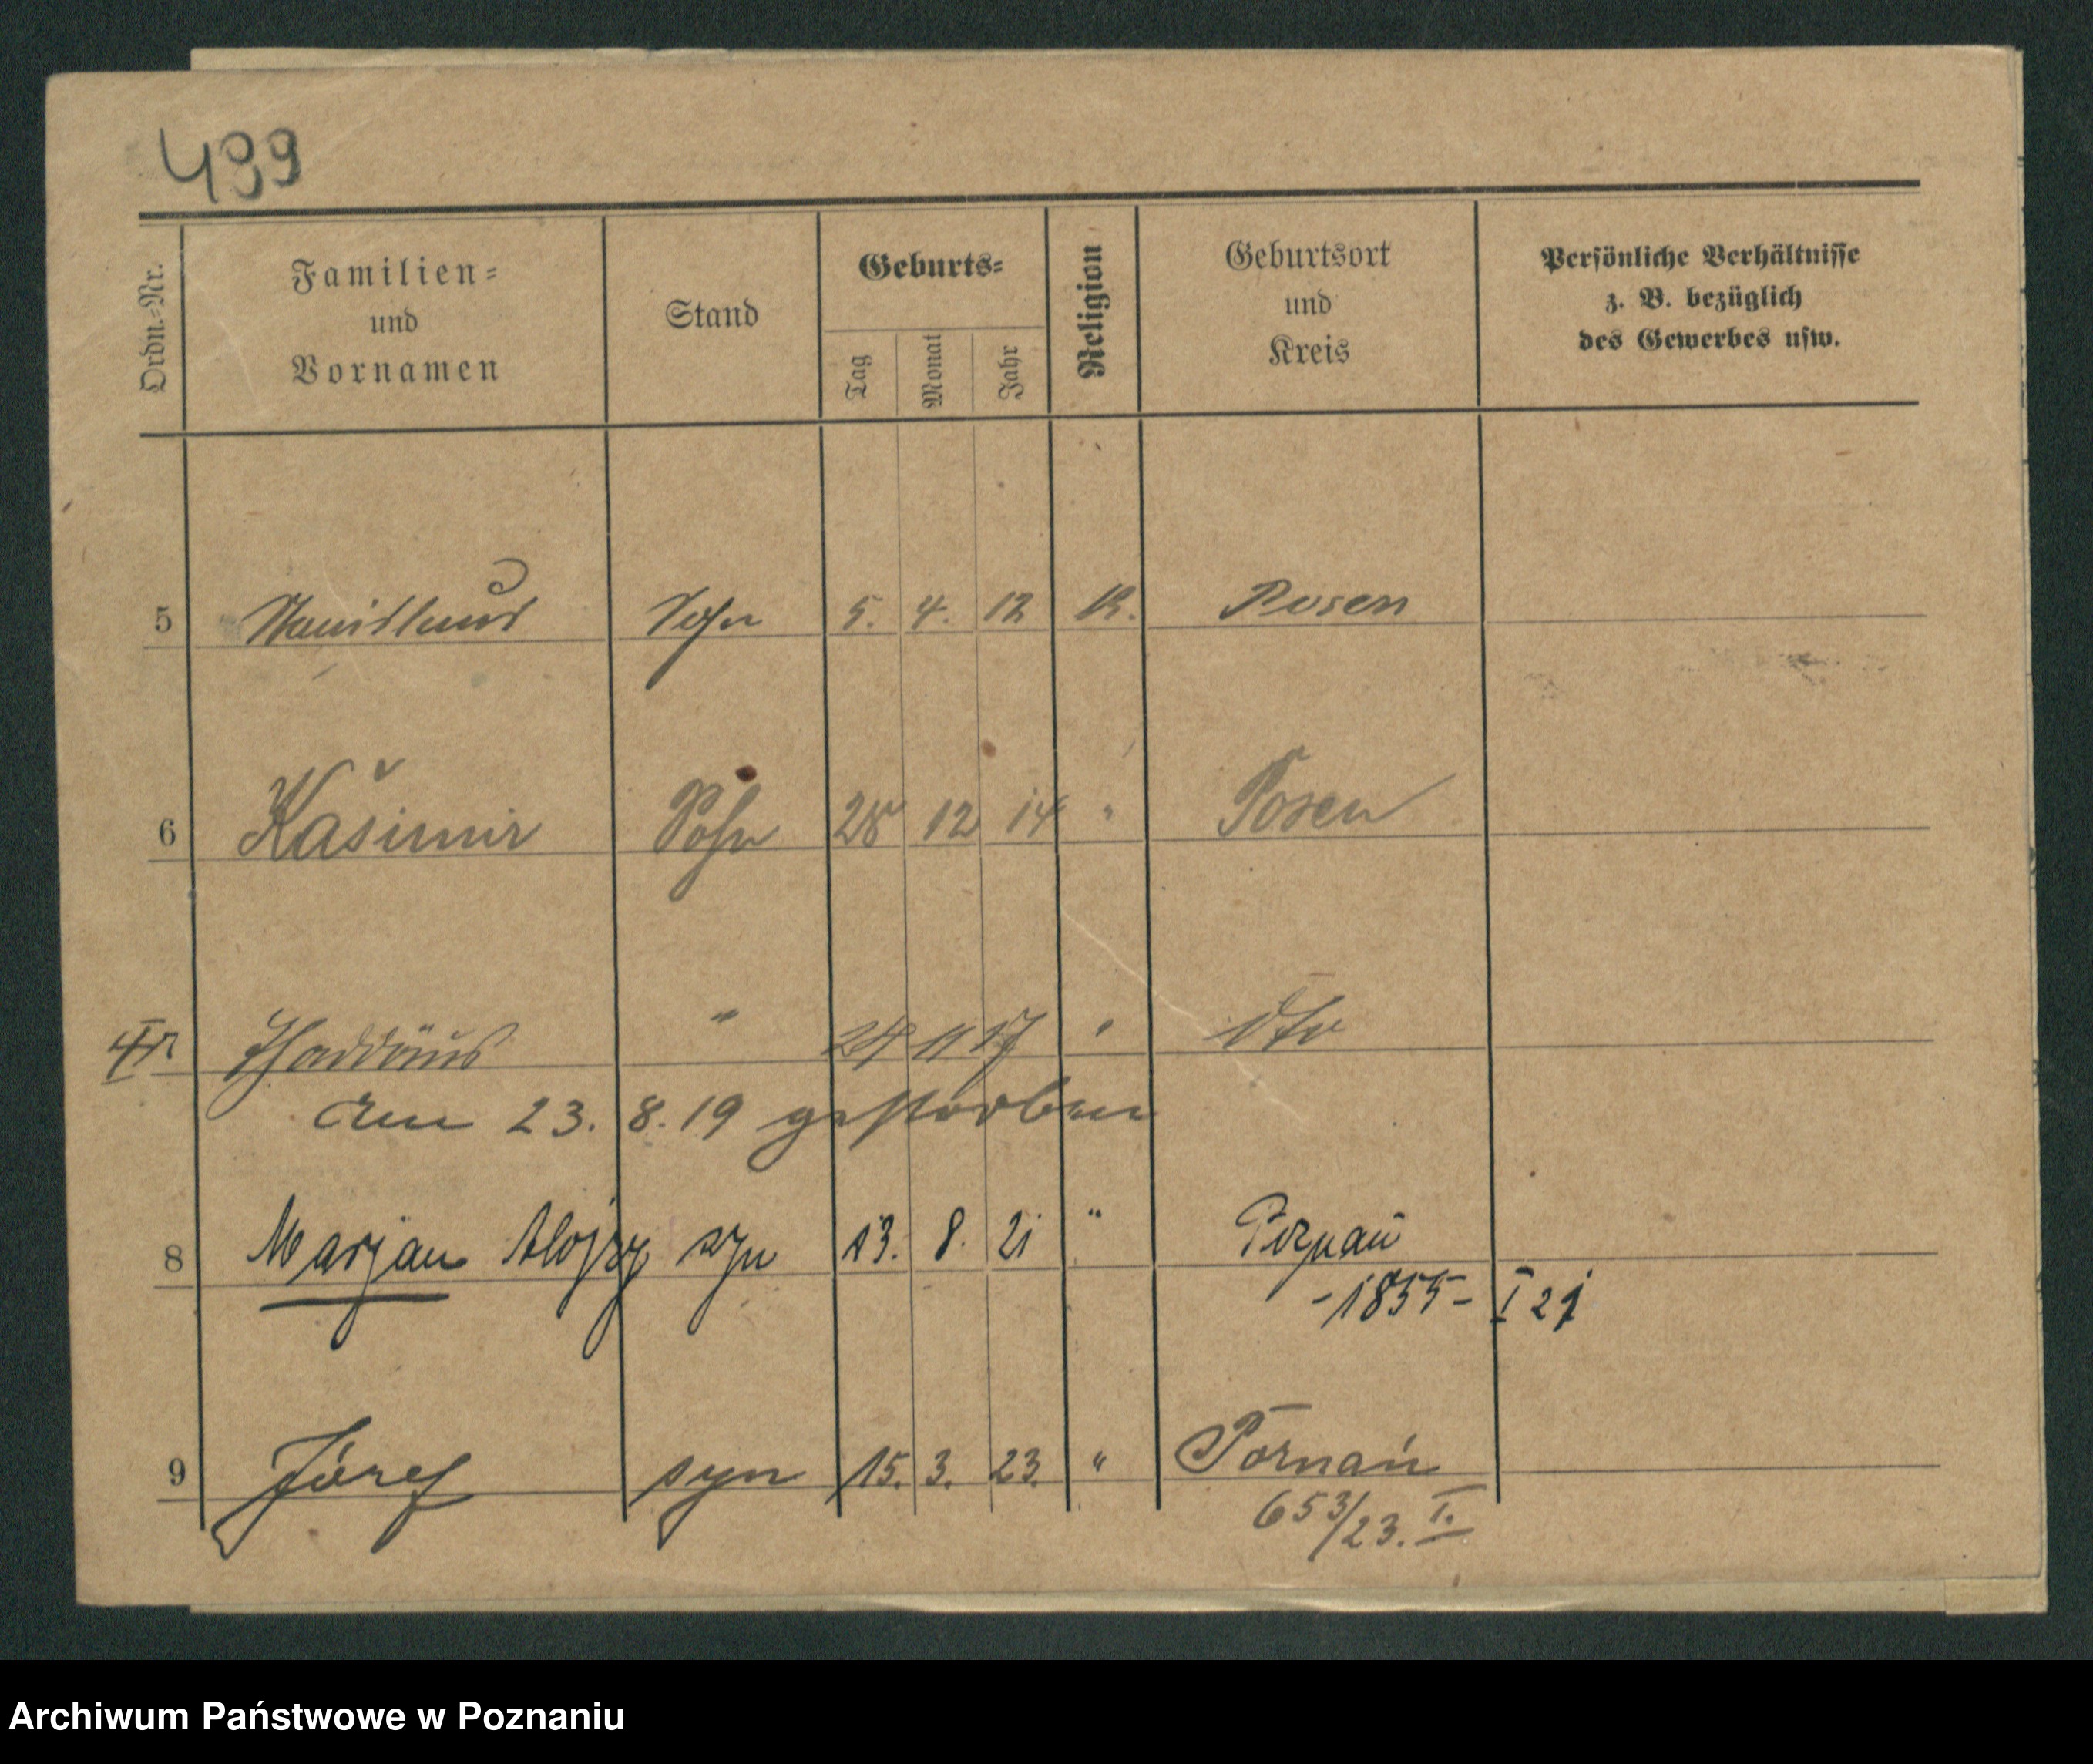 499
Ordn.-Nr.
Familien-
und
Vornamen
Stand
Geburts-
Tag
Monat
Jahr
Religion
Geburtsort
und
Kreis
Persönliche Verhältnisse
z. B. bezüglich
des Gewerbes usw.
5 Stanislaus Sohn 5. 4. 12 K. Posen
6 Kasimir Sohn 28 12 14 " Posen
Thaddäus " 24 11 17 " dto
am 23. 8. 19 gestorben
8 Marjan Alojzy syn 13. 8. 21 " Poznań
-1855- I 21
9 Józef syn 15. 3. 23. " Poznań
653/23. I.
Archiwum Państwowe w Poznaniu